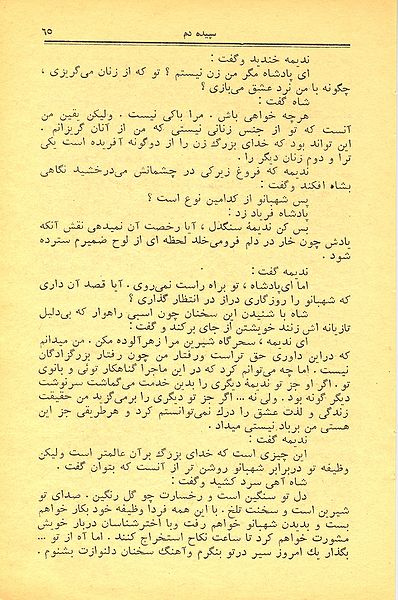 سپیده دم ۶۵
ندیمه خندید وگفت :
ای پادشاه مگر من زن نیستم ؟ تو که از زنان می‌گریزی ،
چگونه با من نرد عشق می‌بازی ؟
شاه گفت :
هرچه خواهی باش . مرا باکی نیست . ولیکن یقین من
آنست که تو از جنس زنانی نیستی که من از آنان گریزانم .
این تواند بود که خدای بزرگ زن را از دوگونه آفریده است یکی
ترا و دوم زنان دیگر را .
ندیمه که فروغ زیرکی در چشمانش می‌درخشید نگاهی
بشاه افکند وگفت :
پس شهبانو از کدامین نوع است ؟
پادشاه فریاد زد :
بس کن ندیمهٔ سنگدل ، آیا رخصت آن نمیدهی نقش آنکه
یادش چون خار در دلم فرومی‌خلد لحظه ای از لوح ضمیرم سترده
شود .
ندیمه گفت :
اما ای‌پادشاه ، تو براه راست نمی‌روی . آیا قصد آن داری
که شهبانو را روزگاری دراز در انتظار گذاری ؟
شاه با شنیدن این سخنان چون اسبی راهوار که بی‌دلیل
تازیانه اش زنند خویشتن از جای برکند و گفت :
ای ندیمه ، سحرگاه شیرین مرا زهرآلوده مکن . من میدانم
که دراین داوری حق تراست ورفتار من چون رفتار بزرگزادگان
نیست . اما چه می‌توانم کرد که در این ماجرا گناهکار توئی و بانوی
تو . اگر او جز تو ندیمهٔ دیگری را بدین خدمت می‌گماشت سرنوشت
دیگر گونه بود . ولی نه ... اگر جز تو دیگری را برمی‌گزید من حقیقت
زندگی و لذت عشق را درك نمی‌توانستم کرد و هرطریقی جز این
هستی من برباد نیستی میداد .
ندیمه گفت :
این چیزی است که خدای بزرگ برآن عالمتر است ولیکن
وظیفه تو دربرابر شهبانو روشن تر از آنست که بتوان گفت .
شاه آهی سرد کشید وگفت :
دل تو سنگین است و رخسارت چو گل رنگین . صدای تو
شیرین است و سخنت تلخ . با این همه فردا وظیفه خود بکار خواهم
بست و بدیدن شهبانو خواهم رفت وبا اخترشناسان دربار خویش
مشورت خواهم کرد تا ساعت نکاح استخراج کنند . اما آه از تو ...
بگذار یك امروز سیر درتو بنگرم وآهنگ سخنان دلنوازت بشنوم .